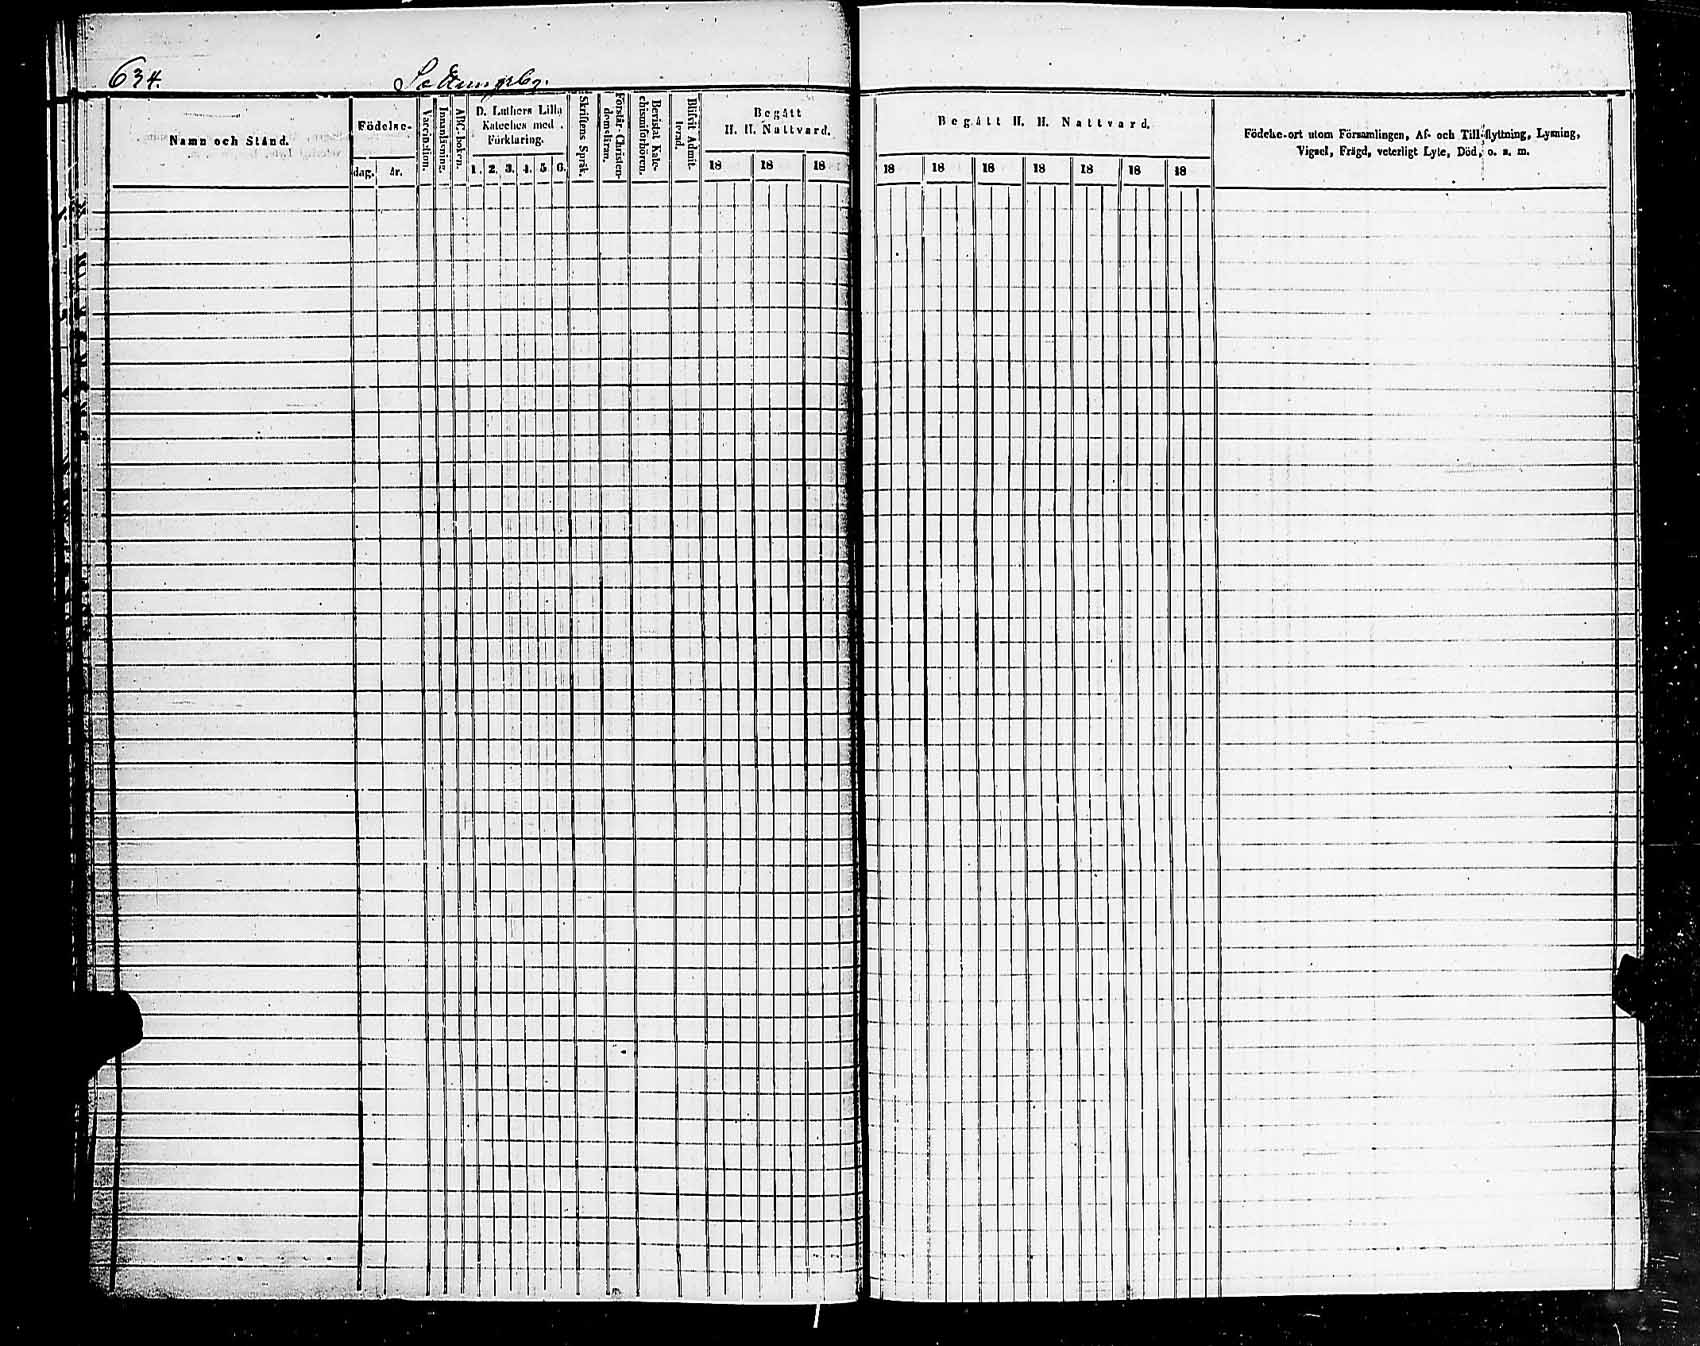 634.
Namn och Stånd.
Födelse-
dag.
år.
Vaccination.
Innanläsning.
ABC-boken.
D. Luthers Lilla
Kateches med
Förklaring.
1. 2. 3. 4. 5 6.
Skriftens Språk.
Förstår Christen-
domsläran.
Bevistat Kate-
chismiförhören.
Blifvit Admit-
terad.
Begått
H. H. Nattvard.
18 18 18
Begått H. H. Nattvard.
18 18 18 18 18 18 18
Födelse-ort utom Församlingen, Af- och Till-flyttning, Lysning,
Vigsel, Frägd, veterligt Lyte, Död, o. s. m.